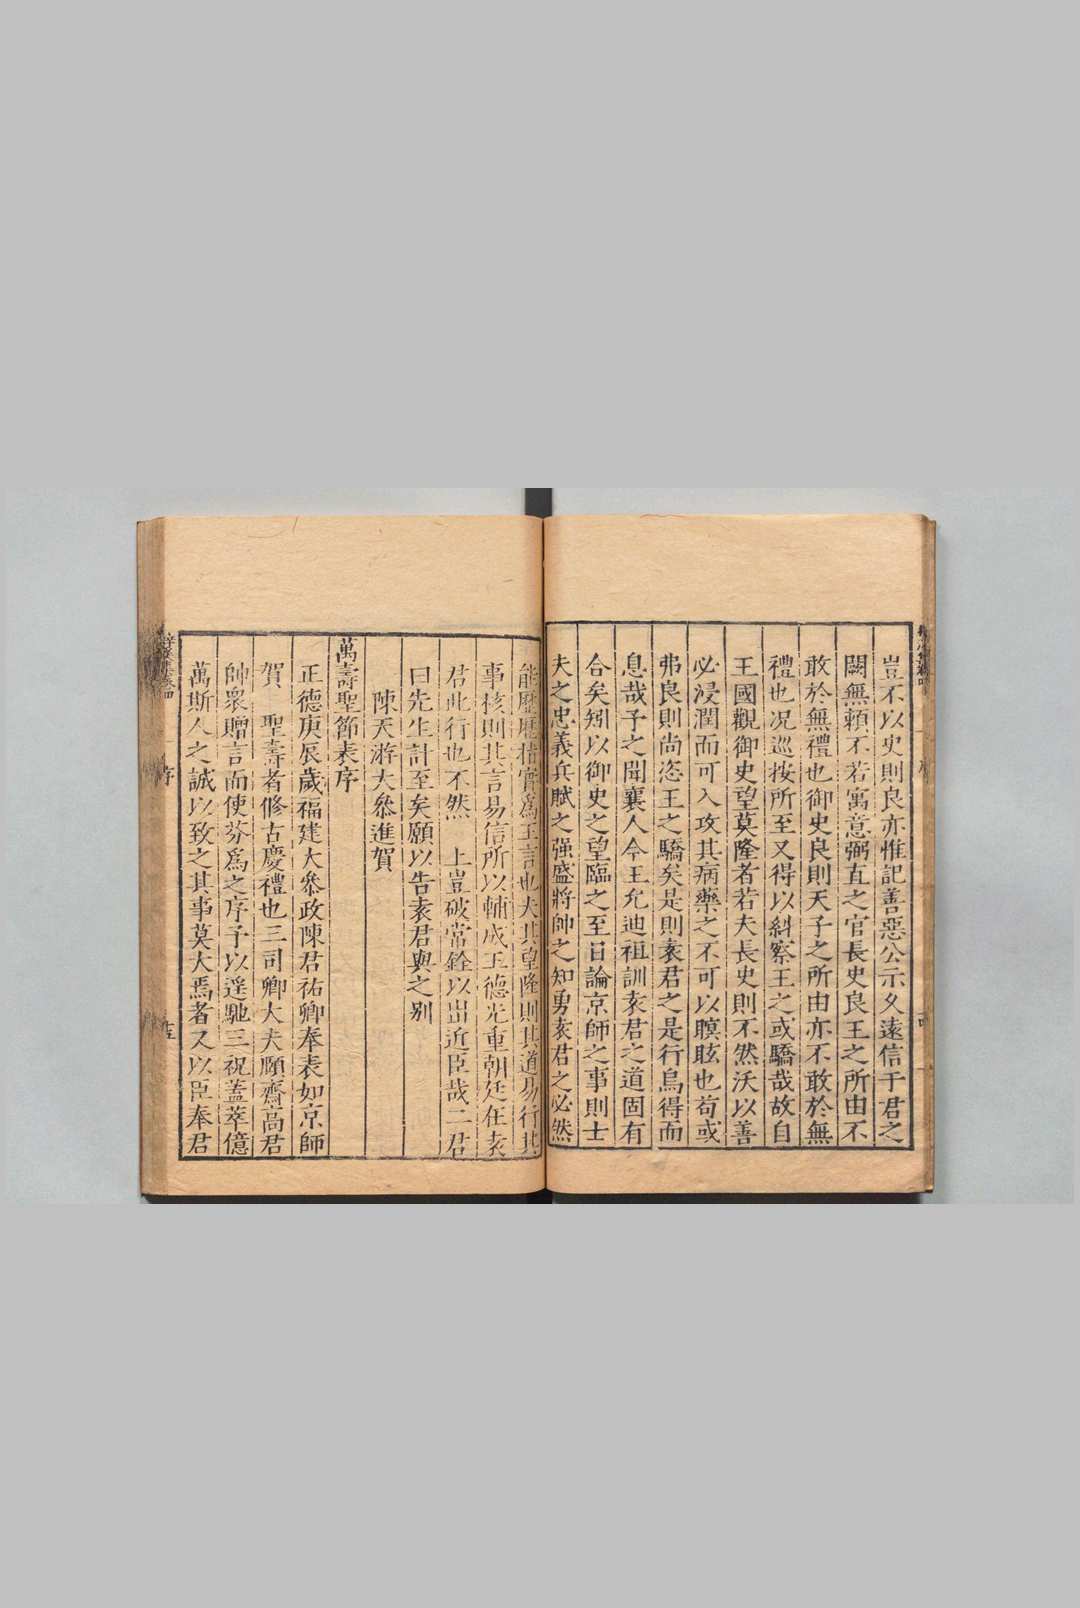 豈不以史則良亦惟記善惡公示久遠信于君之
闕無頼不若寓意弼直之官長史良王之所由不
敢於無禮也御史良則天子之所由亦不敢於無
禮也况巡按所至又得以糾察王之或驕哉故自
王國觀御史望莫隆者若夫長史則不然沃以善
必浸潤而可入攻其病藥之不可以瞑眩也苟或
弗良則尚恣王之驕矣是則袁君之是行烏得而
息哉予之聞襄人今王允迪祖訓袁君之道固有
合矣矧以御史之望臨之至日論京師之事則士
夫之忠義兵賦之强盛將帥之知勇袁君之必然
能歷歷指實爲王言也夫其望隆則其道易行其
事核則其言易信所以輔成王德光重朝廷在袁
君此行也不然　上豈破常銓以出近臣哉二君
曰先生計至矣願以告袁君與之别
陳天游大叅進賀
萬壽聖節表序
正德庚辰歲福建大叅政陳君祐卿奉表如京師
賀　聖壽者脩古慶禮也三司卿大夫願齋高君
帥衆贈言而使芬爲之序予以遥馳三祝蓋萃億
萬斯人之誠以致之其事莫大焉者又以臣奉君
序
十五